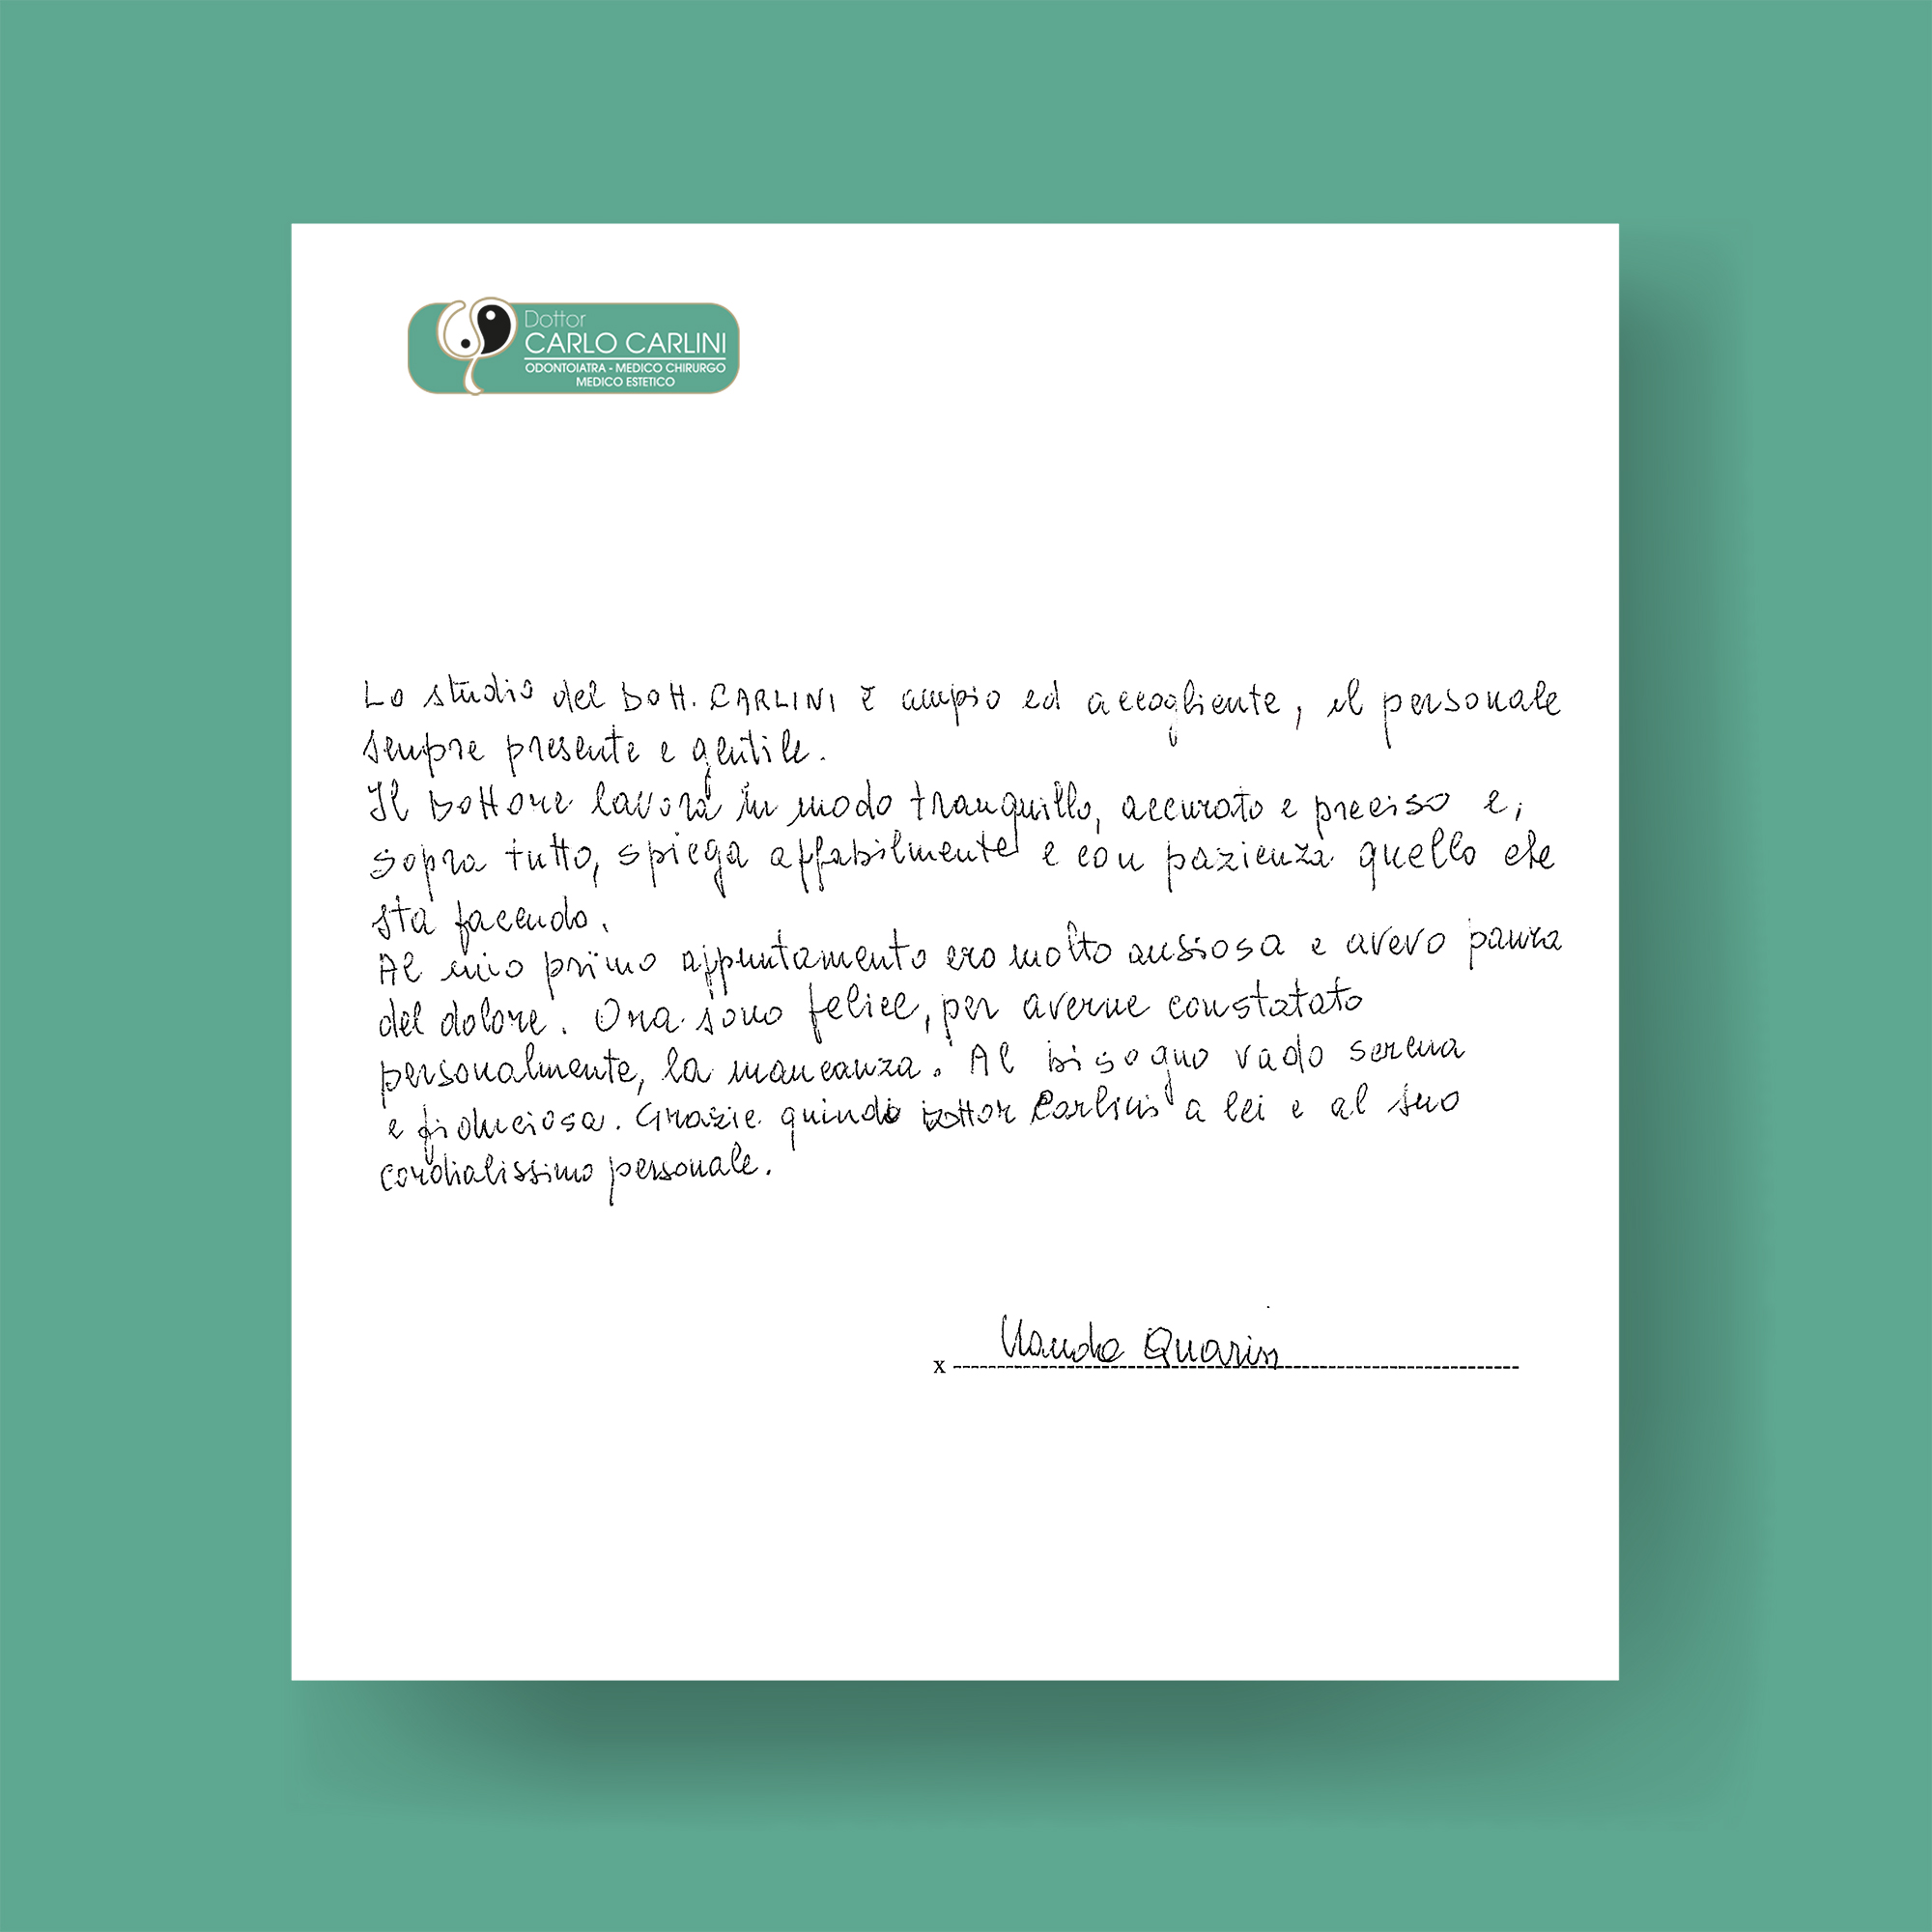 Dottor
CARLO CARLINI
ODONTOIATRA - MEDICO CHIRURGO
MEDICO ESTETICO
Lo studio del Dott. CARLINI è ampio ed accogliente, il personale
sempre presente e gentile.
Il Dottore lavora in modo tranquillo, accurato e preciso e,
sopra tutto, spiega affabilmente e con pazienza quello che
sta facendo.
Al mio primo appuntamento ero molto ansiosa e avevo paura
del dolore. Ora sono felice, per averne constatato
personalmente, la mancanza. Al bisogno vado serena
e fiduciosa. Grazie quindi Dottor Carlini a lei e al suo
cordialissimo personale.
x Quarin